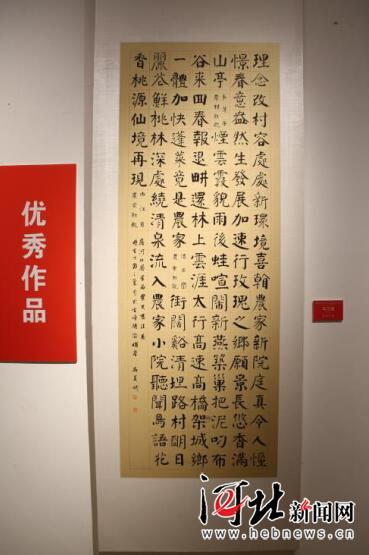 理念改村容處處新環境喜翰農家新院庭真令人憧
憬春意盎然生發展加速行玫瑰之鄉願景長悠香滿
山亭煙雲霞貌雨後蛙喧鬧新燕築巢把泥叼布
谷來回春報退耕還林上雲涯太行高速高橋架城鄉
一體加快蓬萊竟是農家街闊谿清坦路村明日
麗谷鮮桃林深處繞清泉流入農家小院聽聞鳥語花
香桃源仙境再現
优秀作品
河北新闻网
www.hebnews.cn